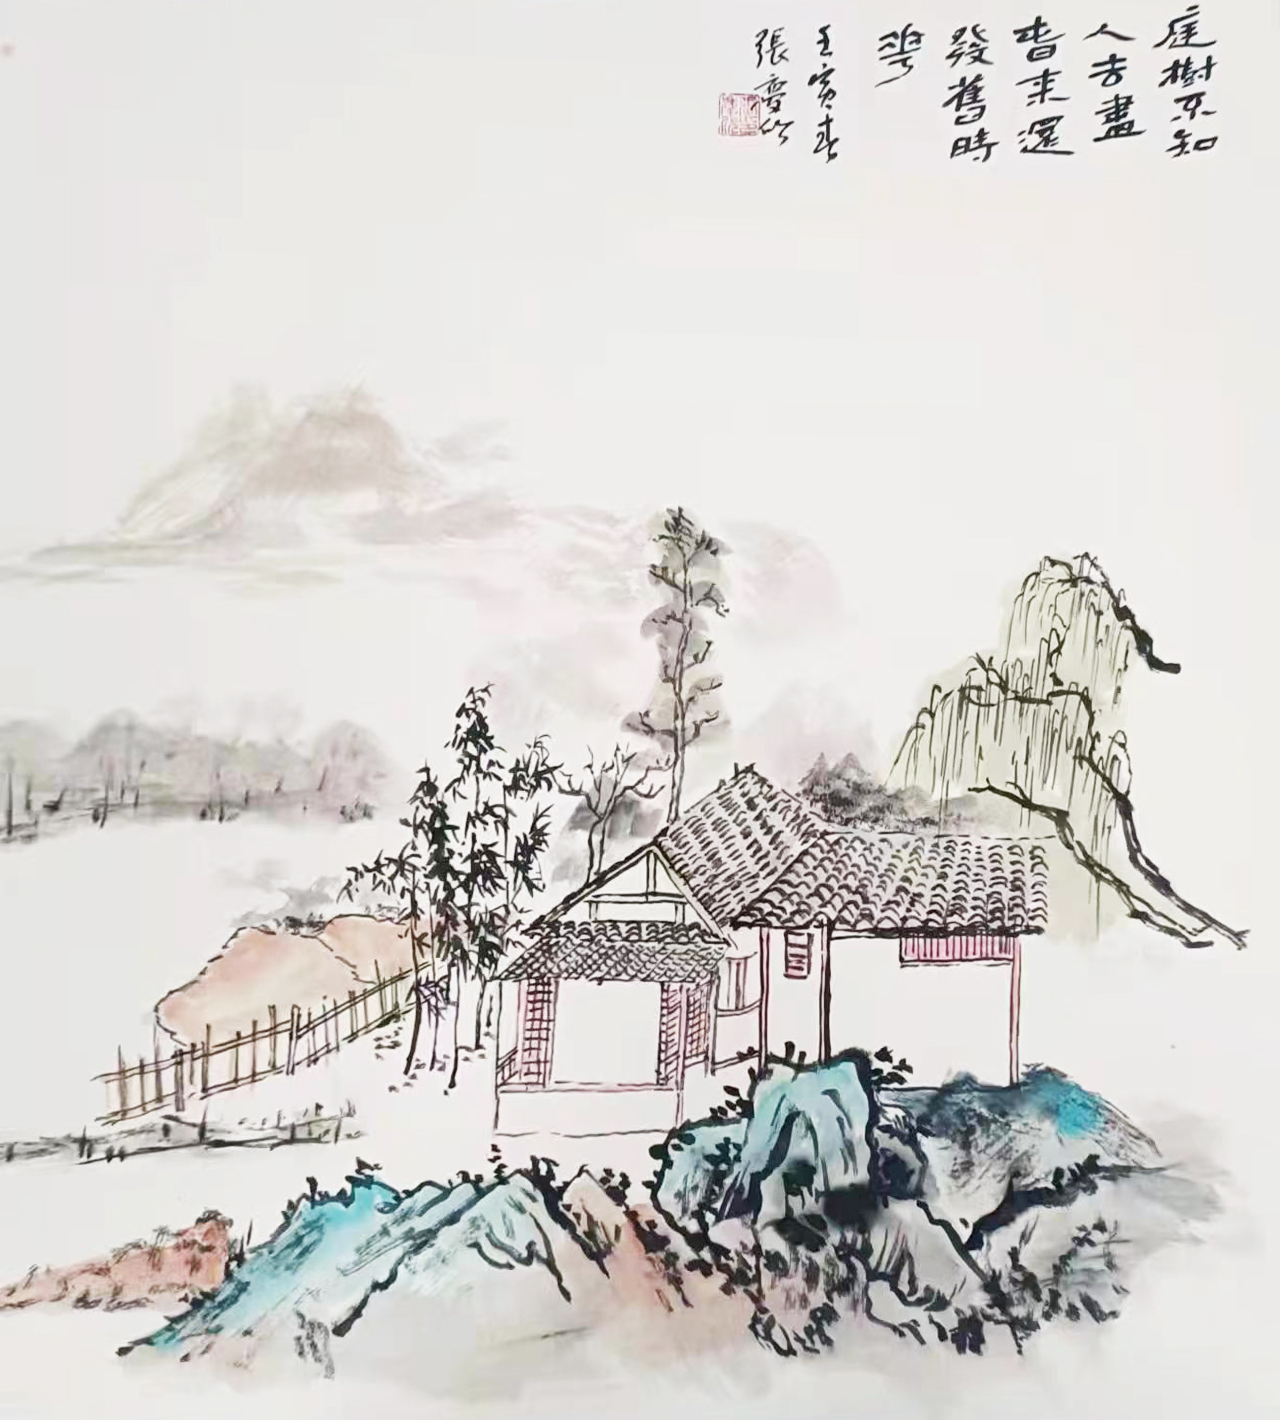 庭樹不知
人去盡
春来還
發舊時
花
壬寅春
張